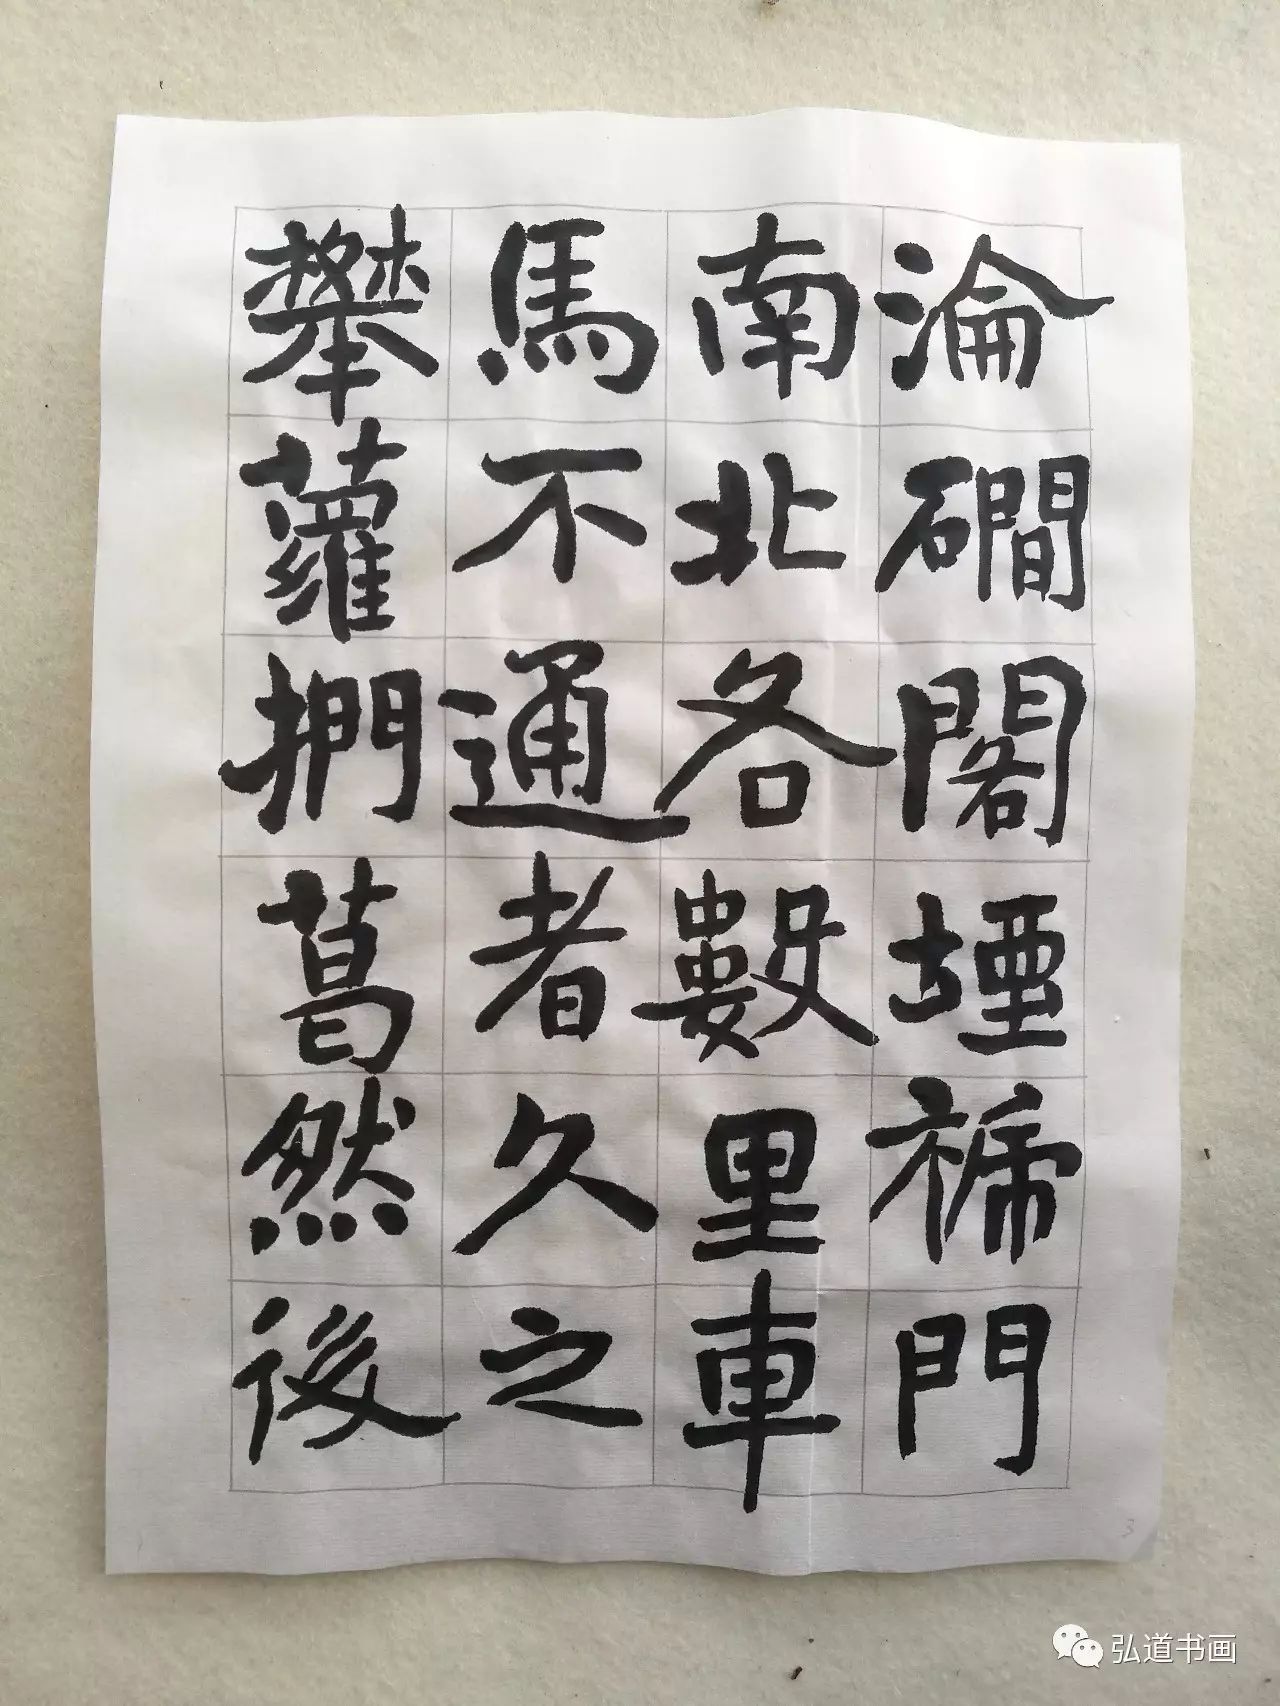 淪磵閣堙褫門
南北各數里車
馬不通者久之
攀蘿捫葛然後
3
弘道书画